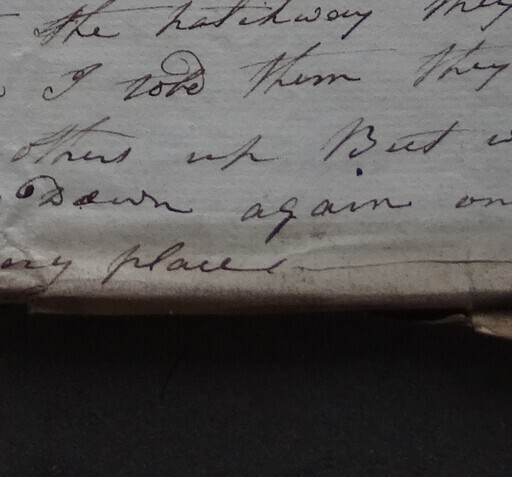 the hatchway they
I told them they
others up But
Down again on
my place